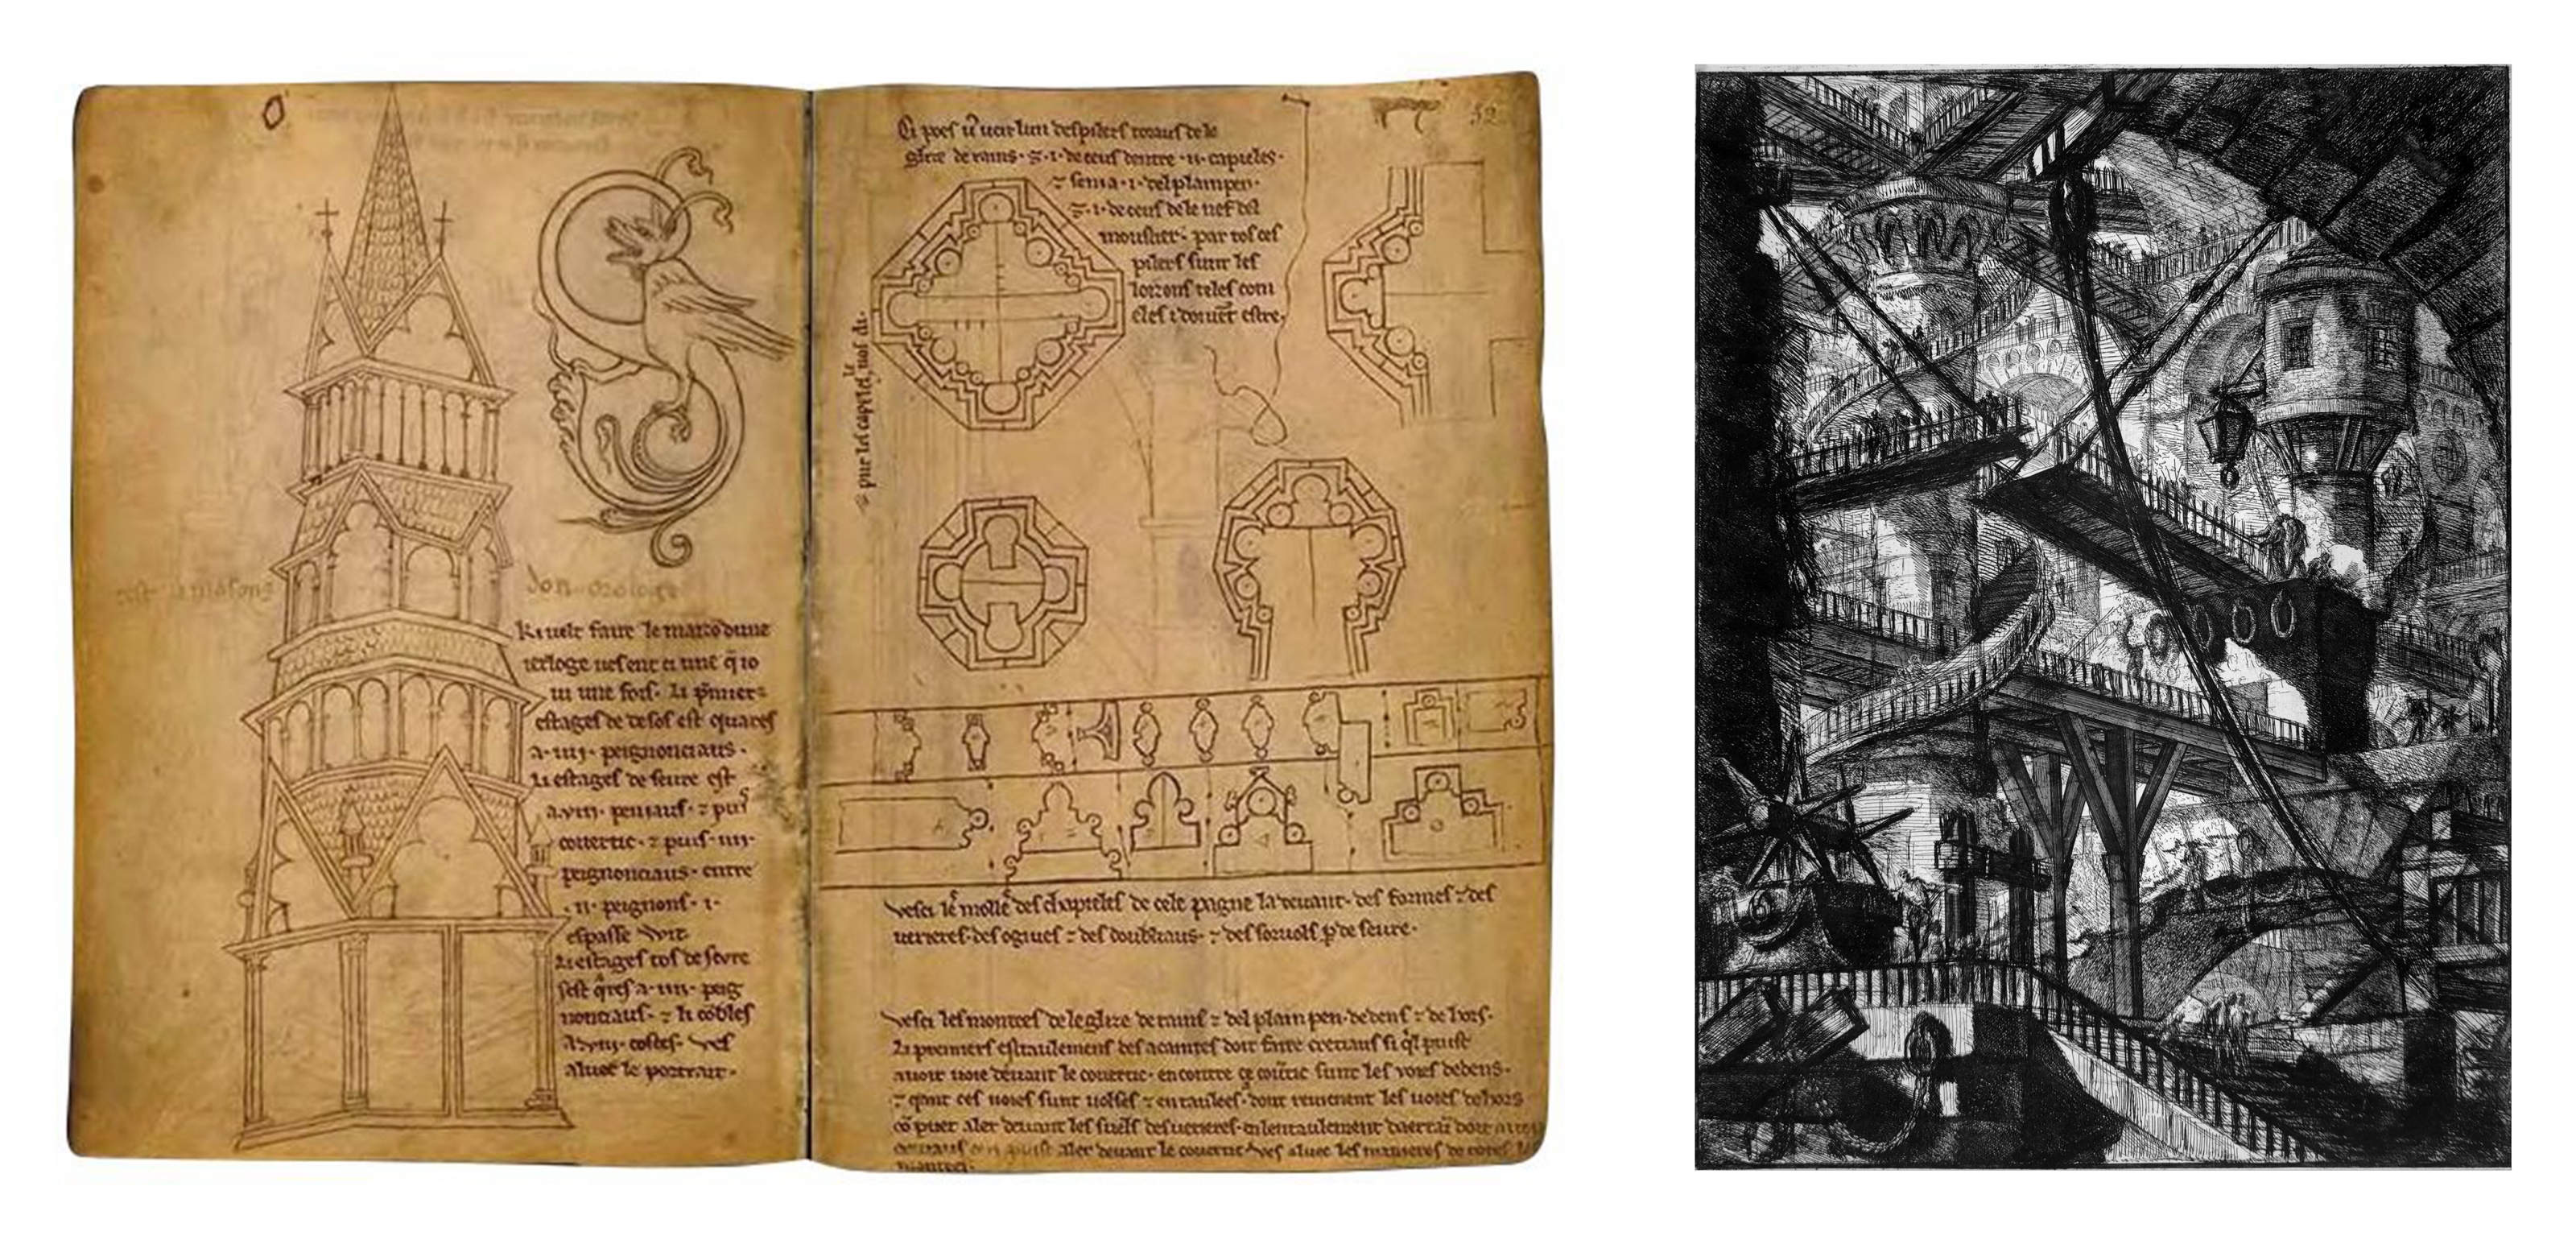 don orologe
Ki uelt faire le maizo dune
ierloge uesent ci une q̄ io
ui une fois. Li p̄miers
estages de desos est quares
a .iiij. peignonciaus.
Li estages de seure est
a.viij. peniaus. ⁊ puis
couertic. ⁊ puis .iiij.
peignonciaus. entre
.ij. peignons. i.
espasse wit
Li estages tos de seure
sest qres a .iiij. peig
nonciaus. ⁊ li cōbles
a.viij. costes. Ves
aluec le portrait.
32
Ci poes uir lun des pilers toraus de le
glize de rains. ⁊ .i. de ceus dentre .ii. capieles.
⁊ sen ia .i. del plain pen.
⁊ .i. de ceus de le nef del
moustier. par tos ces
pilers sunt les
loizons teles com
eles i doiuēt estre.
Vesci les molles des chapieles de cele pagne la deuant. des formes ⁊ des
uerieres. des ogiues ⁊ des doubliaus. ⁊ des sorvols p̄ de seure.
Vesci les montees de le glize de rains ⁊ del plain pen. dedens ⁊ de hors.
Li premiers estaulemens des acaintes doit faire creniaus si q̄l puist
auoir uoie deuant le couertic. encontre ce couertic sunt les uoies dedens.
⁊ qant ces uoies sunt uolses ⁊ entaulees. dont reuienent les uoies dehors
cō puet aler deuant les suels des uerieres. en lentaulement daerrain doit auoir
creniaus con puist aler deuant le couertic. Ves aluec les manieres de totes les
montees.